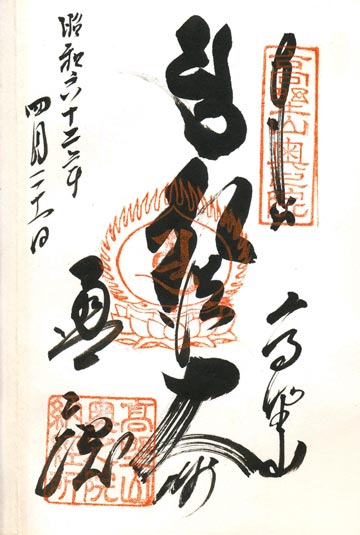 高野山奥之院
高野山
弘法大師
奥之院
昭和六十二年
四月二十一日
高野山
奥之院
納経所